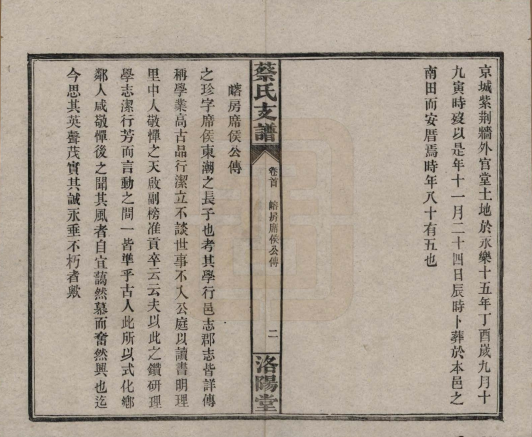 京城紫荆牆外官堂土地於永樂十五年丁酉歲九月十
九寅時歿以是年十一月二十四日辰時卜葬於本邑之
南田而安厝焉時年八十有五也
蔡氏支譜
卷首
嶜房席侯公傳
二
洛陽堂
嶜房席侯公傳
之珍字席侯東潮之長子也考其學行邑志郡志皆詳傳
稱學業高古品行潔立不談世事不入公庭以讀書明理
里中人敬憚之天啟副榜准貢卒云云夫以此之鑽研理
學志潔行芳而言動之間一皆準乎古人此所以式化鄉
鄰人咸敬憚後之聞其風者自宜藹然慕而奮然興也迄
今思其英聲茂實其誠永垂不朽者歟